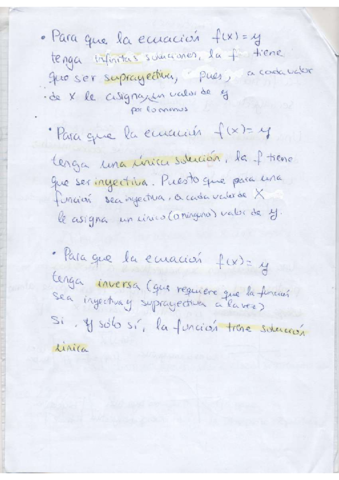 • Para que la ecuación f(x)=y
tenga infinitas soluciones, la f tiene
que ser suprayectiva, pues, a cada valor
de X le asigna un valor de y
por lo menos
• Para que la ecuación f(x)=y
tenga una única solución, la f tiene
que ser inyectiva. Puesto que para una
función sea inyectiva, a cada valor de X
le asigna un único (o ninguno) valor de y.
• Para que la ecuación f(x)=y
tenga inversa (que requiere que la función
sea inyectiva y suprayectiva a la vez)
Si. Y sólo sí, la función tiene solución
única